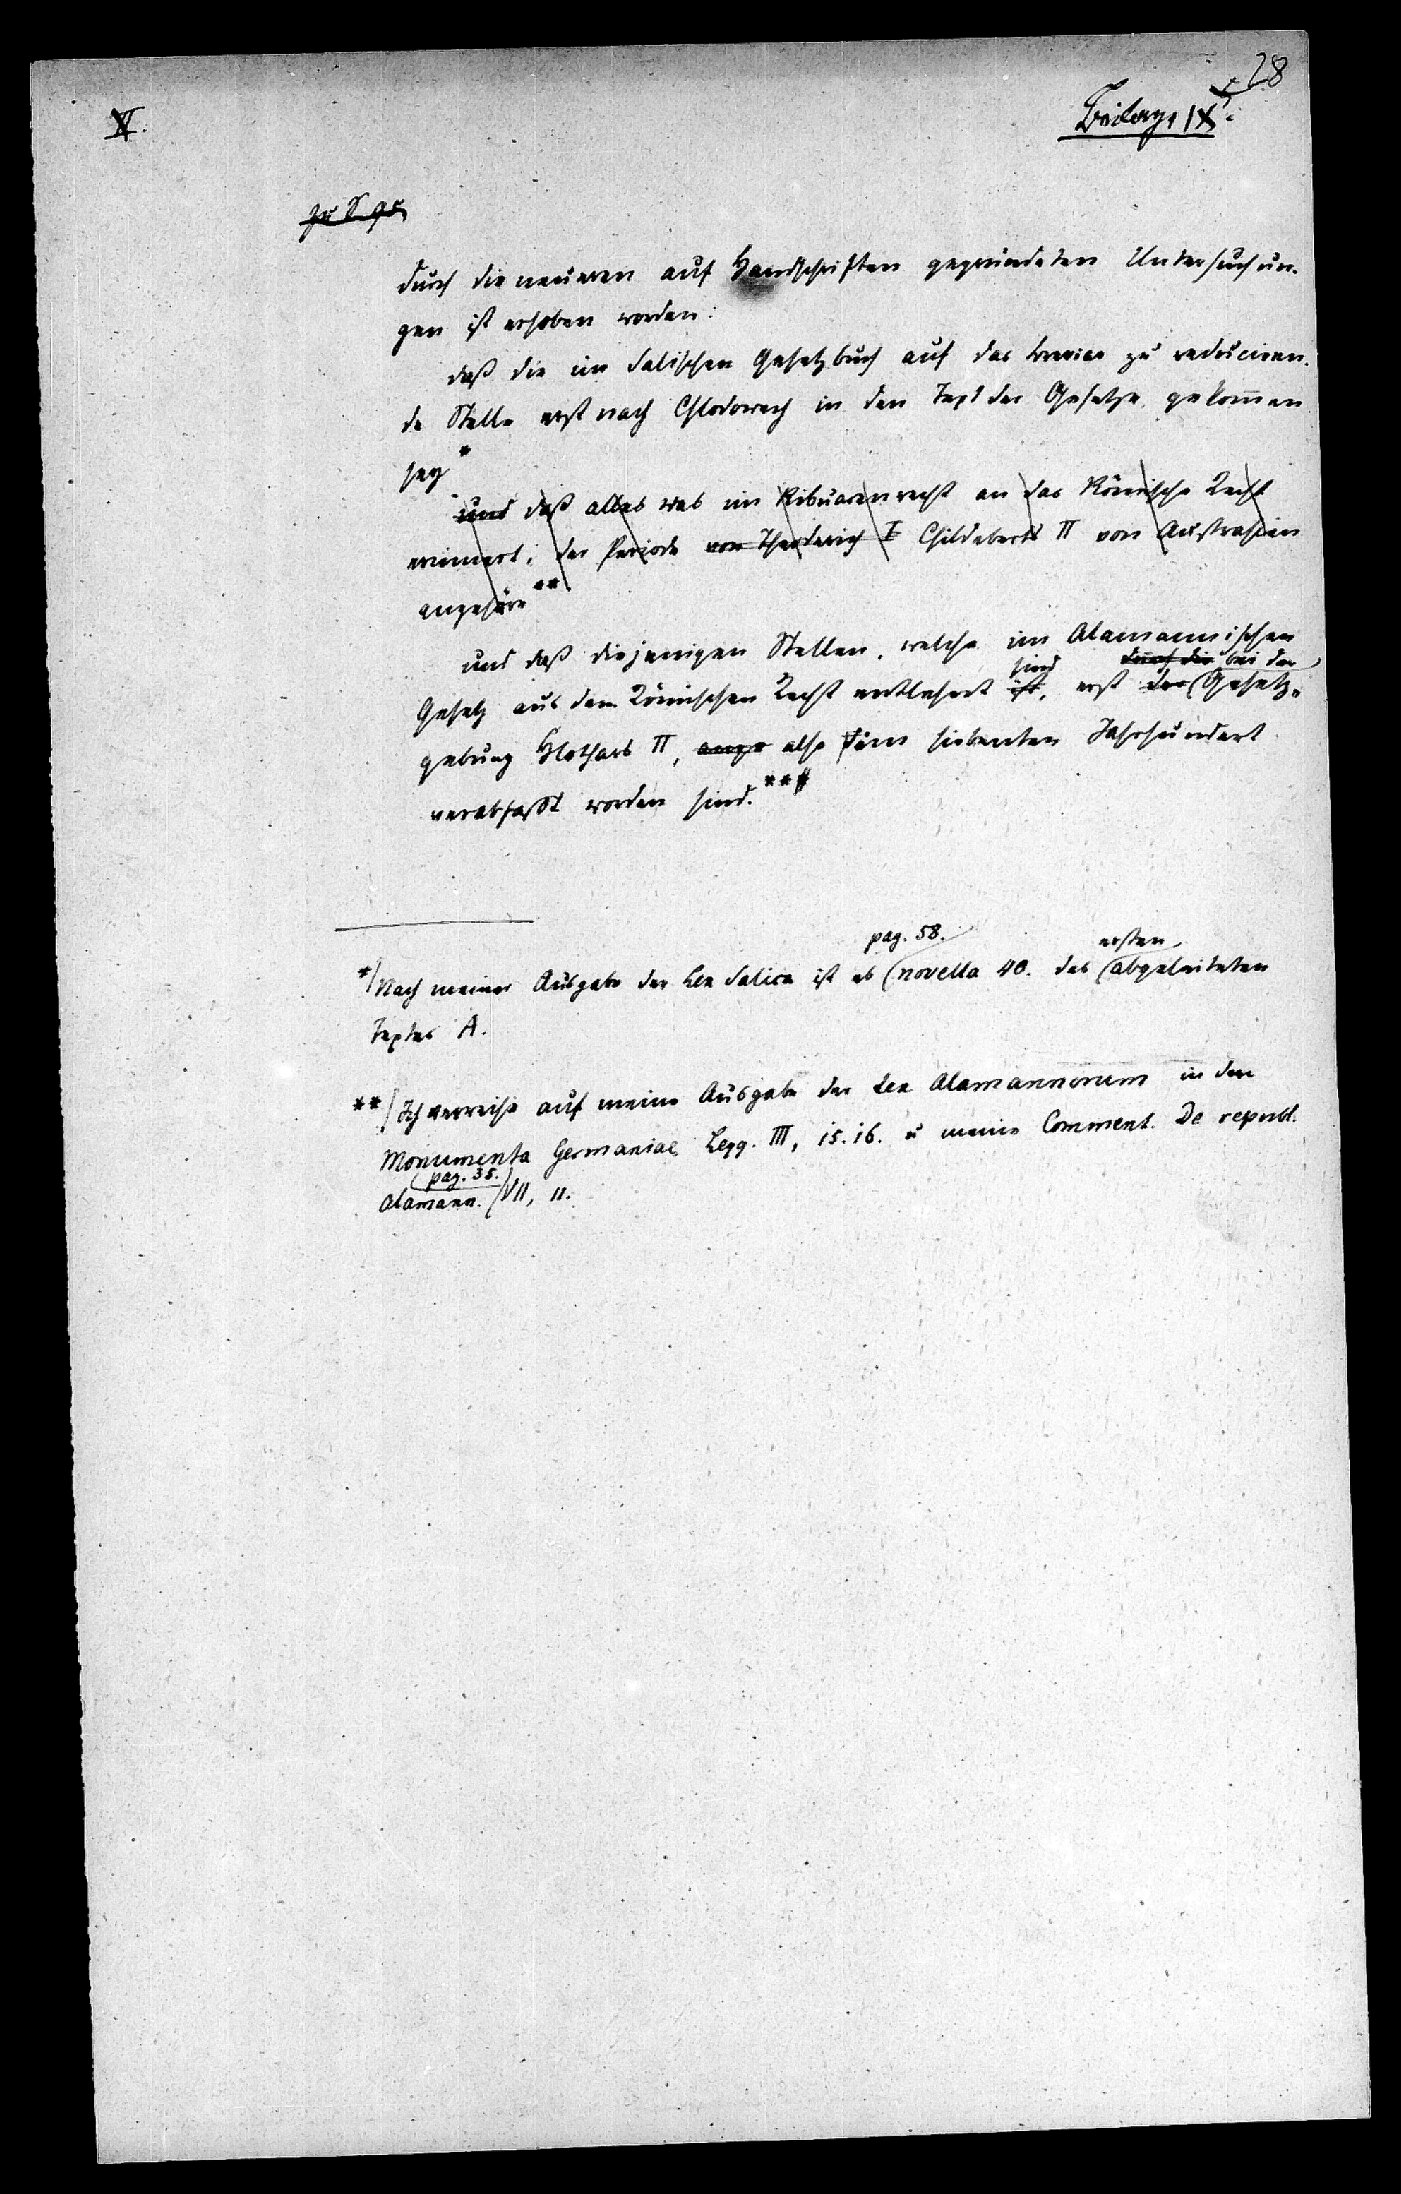 28
Beilage IX.
durch die neueren auf Handschriften gegründeten Untersuchun-
gen ist erhoben worden:
daß die im Salischen Gesetzbuch auf das breviar zu reduciren-
de Stelle erst nach Chlodowech in den Text der Gesetze gekom̄en
sey*
und daß alles was im Ribuarenrecht an das Römische Recht
erinnert, der Periode von Theoderich I Childeberts II von Austrasien
angehöre**
und daß diejenigen Stellen, welche im Alamannischen
sind durch die bei der
Gesetz aus dem Römischen Recht entlehnt ist, erst der Gesetz-
gebung Hlothars II, ange also dem siebenten Jahrhundert
verabfaßt worden sind.***
pag. 58. ersten
*/ Nach meiner Ausgabe der Lex Salica ist es novella 40. des abgeleiteten
Textes A.
**/ Ich verweise auf meine Ausgabe der Lex Alamannorum in den
Monumenta Germaniae Legg. III, 15.16. u meine Comment. De republ.
pag. 35.
Alamann. VII, 11.